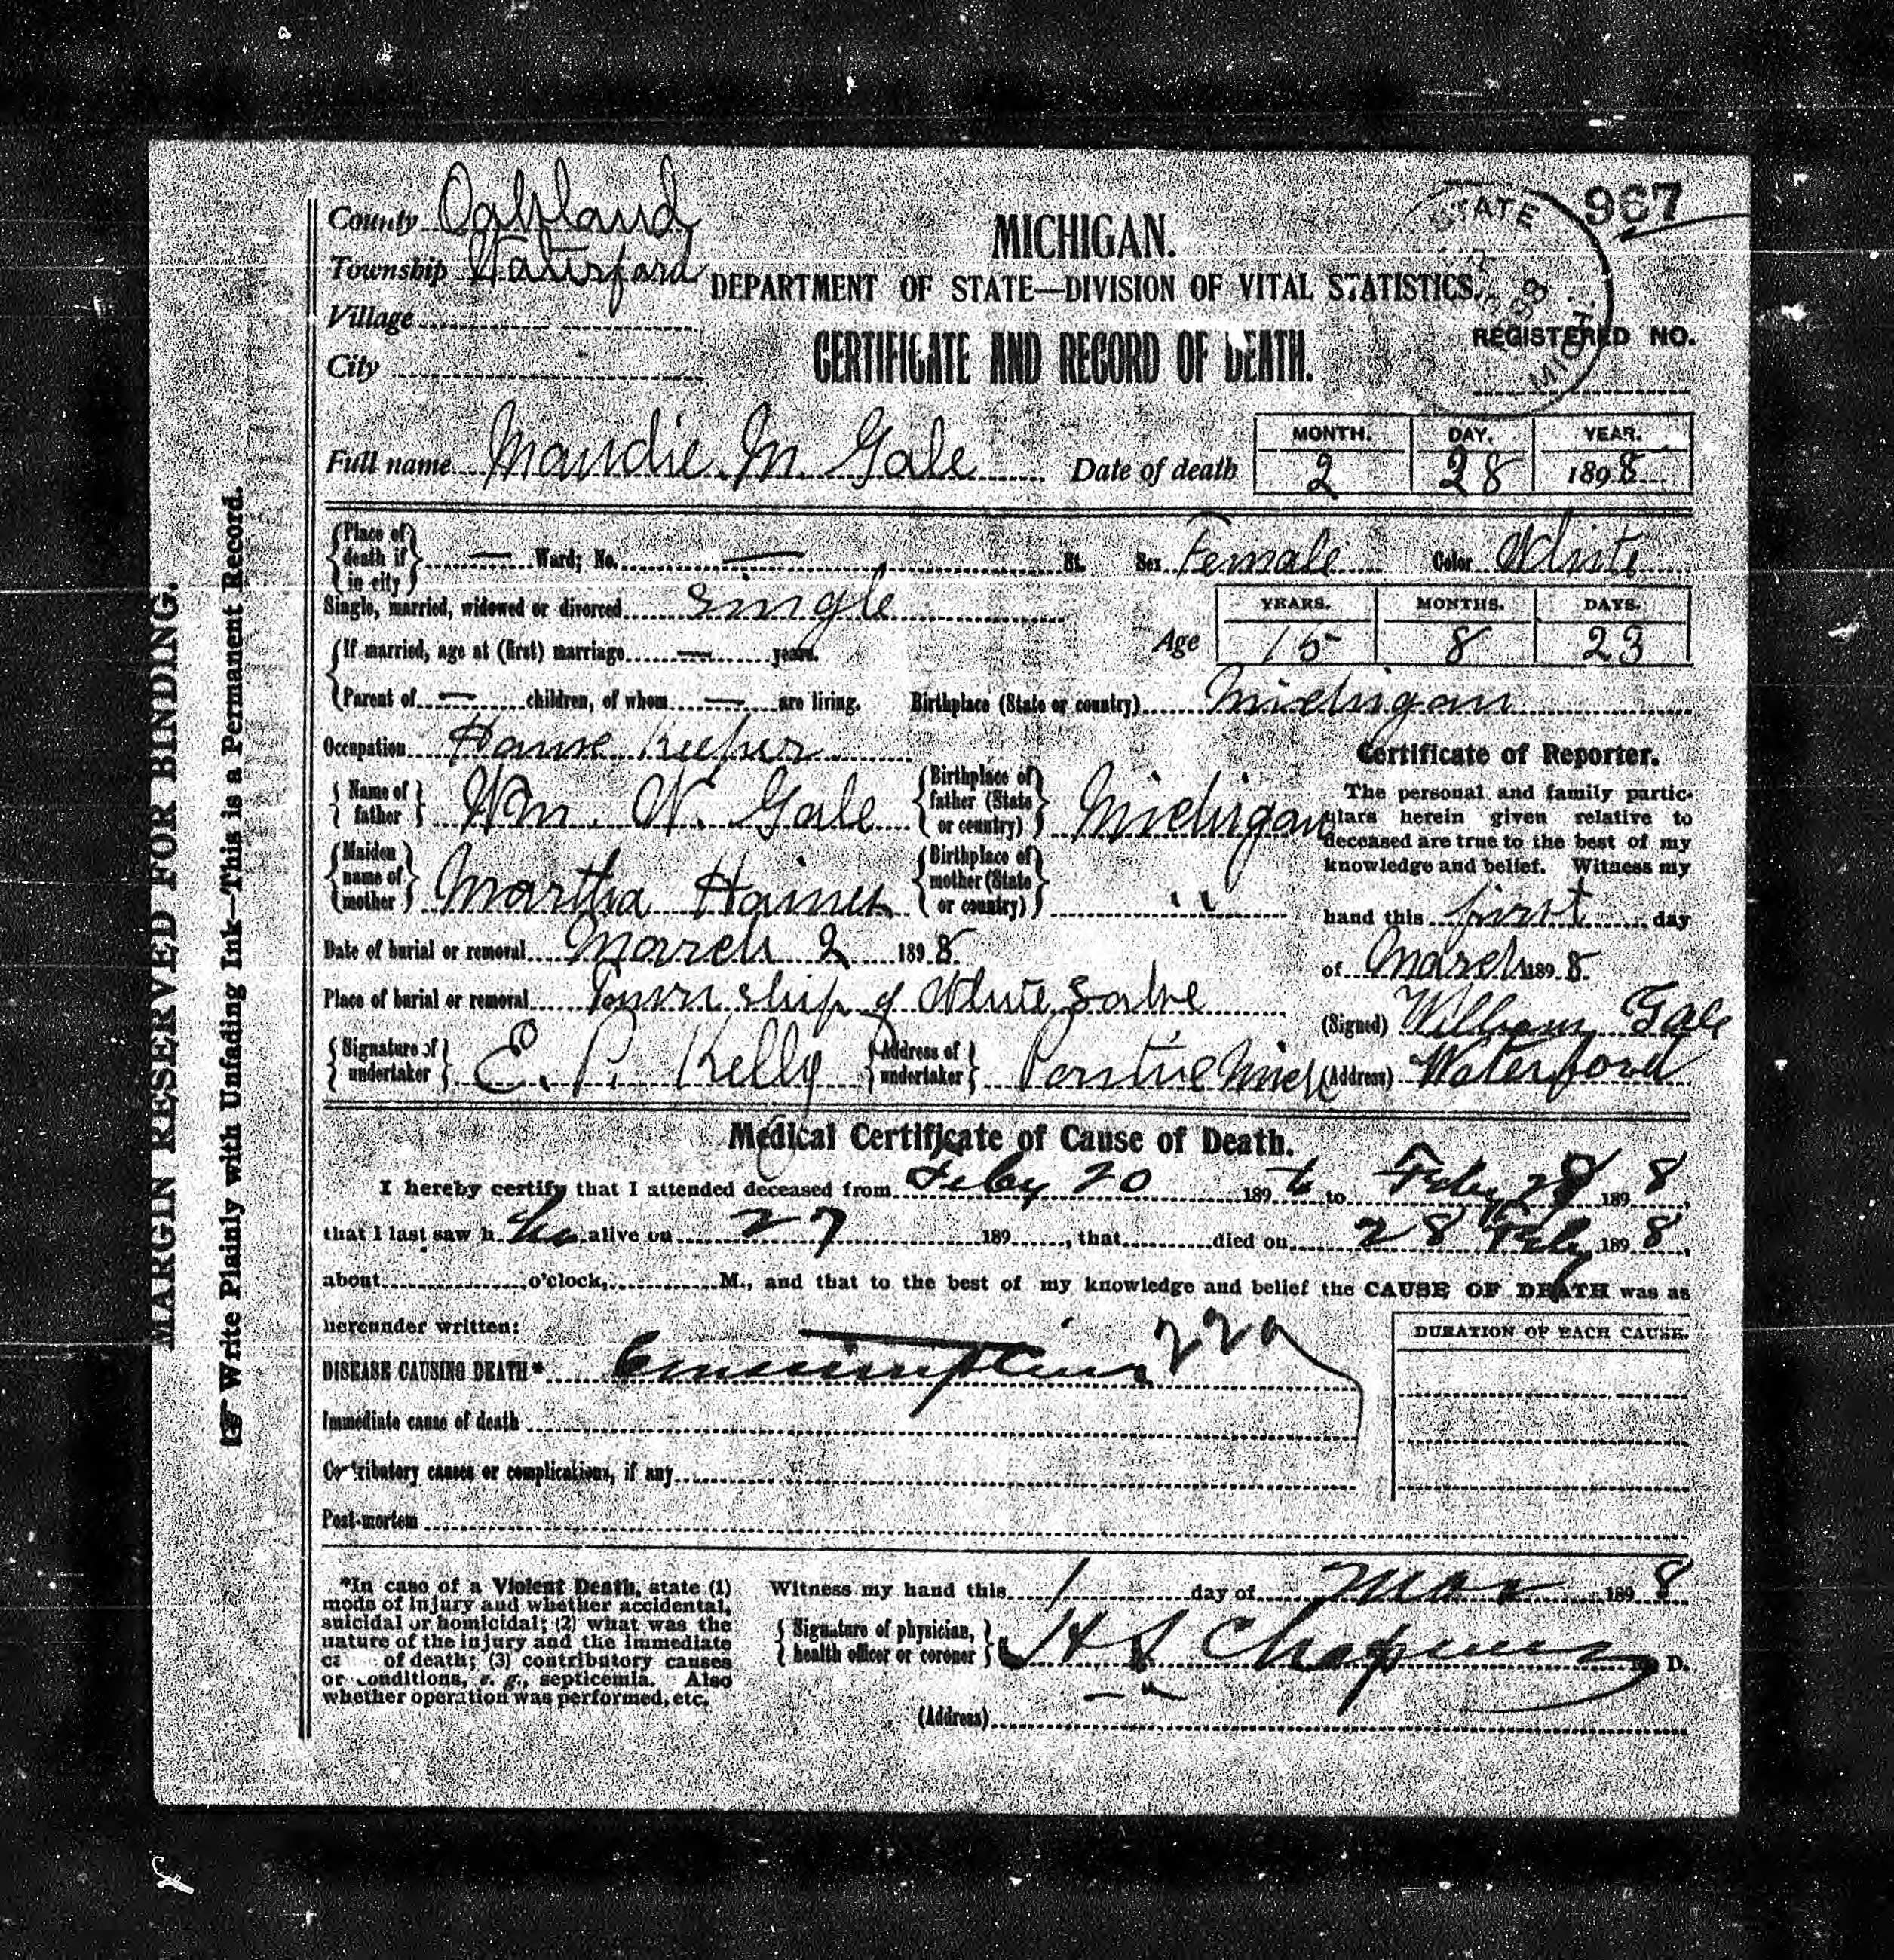 967
County Oakland
Township Waterford
Village
City
MICHIGAN.
DEPARTMENT OF STATE—DIVISION OF VITAL STATISTICS.
CERTIFICATE AND RECORD OF DEATH.
STATE
MICH.
REGISTERED NO.
Full name Maudie M. Gale Date of death
MONTH. DAY. YEAR.
2 28 1898
{Place of death if in city} — Ward; No. — St. Sex Female Color White
Single, married, widowed or divorced single
Age YEARS. MONTHS. DAYS.
15 8 23
If married, age at (first) marriage — years.
Parent of — children, of whom — are living. Birthplace (State or country) Michigan
Occupation House Keeper
{Name of father} Wm. W. Gale {Birthplace of father (State or country)} Michigan
{Maiden name of mother} Martha Haines {Birthplace of mother (State or country)} "
Date of burial or removal March 2 1898
Place of burial or removal Township of White Lake
{Signature of undertaker} E. P. Kelly {Address of undertaker} Pontiac Mich
Certificate of Reporter.
The personal and family partic-
ulars herein given relative to
deceased are true to the best of my
knowledge and belief. Witness my
hand this first day
of March 1898
(Signed) William Gale
(Address) Waterford
Medical Certificate of Cause of Death.
I hereby certify that I attended deceased from Feby 20 189 to Feby 28 1898,
that I last saw h alive on 27 189 , that died on 28 Feby 1898,
about o'clock, M., and that to the best of my knowledge and belief the CAUSE OF DEATH was as
hereunder written:
DURATION OF EACH CAUSE.
DISEASE CAUSING DEATH* Consumption
Immediate cause of death
Contributory causes or complications, if any
Post-mortem
*In case of a Violent Death, state (1)
mode of injury and whether accidental,
suicidal or homicidal; (2) what was the
nature of the injury and the immediate
of death; (3) contributory causes
or conditions, e. g., septicemia. Also
whether operation was performed, etc.
Witness my hand this 1 day of Mar 1898
{Signature of physician, health officer or coroner} Chapman D.
(Address)
MARGIN RESERVED FOR BINDING.
☞ Write Plainly with Unfading Ink—This is a Permanent Record.